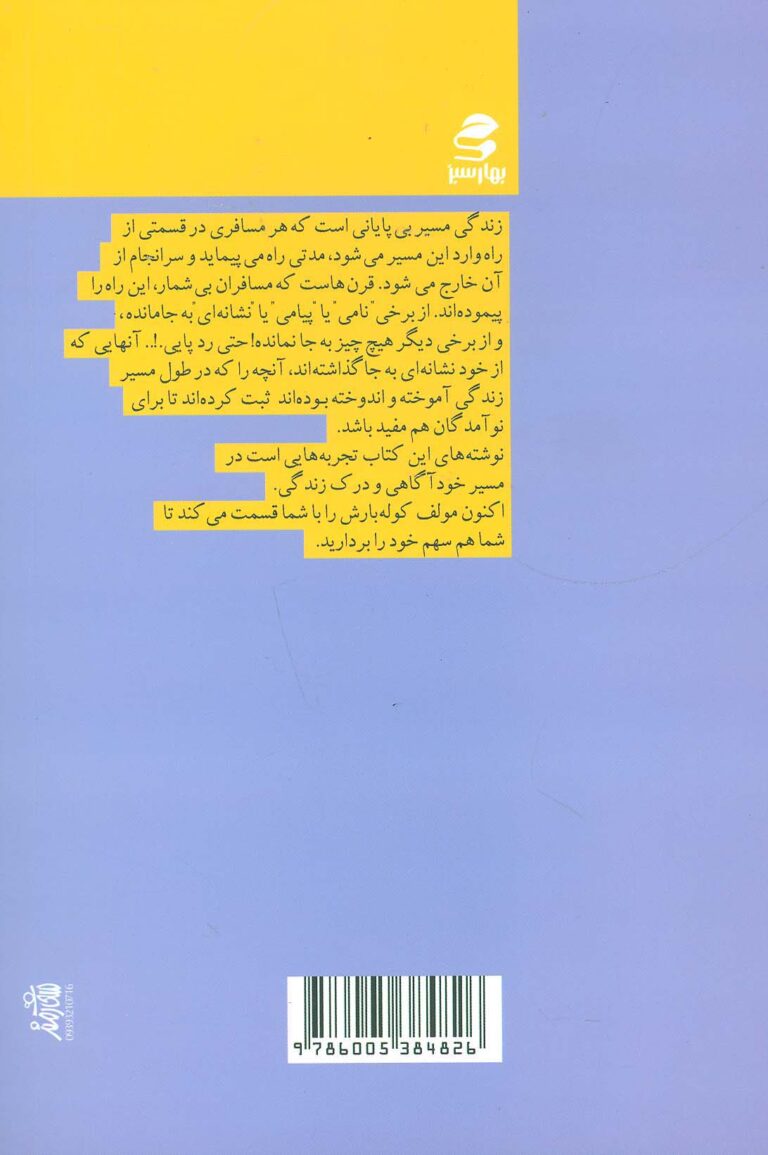 بهارسبز
زندگی مسیر بی پایانی است که هر مسافری در قسمتی از
راه وارد این مسیر می شود، مدتی راه می پیماید و سرانجام از
آن خارج می شود. قرن هاست که مسافران بی شمار، این راه را
پیموده‌اند. از برخی "نامی" یا "پیامی" یا "نشانه‌ای" به جا مانده،
و از برخی دیگر هیچ چیز به جا نمانده! حتی رد پایی.!.. آنهایی که
از خود نشانه‌ای به جا گذاشته‌اند، آنچه را که در طول مسیر
زندگی آموخته و اندوخته بوده‌اند ثبت کرده‌اند تا برای
نوآمدگان هم مفید باشد.
نوشته‌های این کتاب تجربه‌هایی است در
مسیر خودآگاهی و درک زندگی.
اکنون مولف کوله‌بارش را با شما قسمت می کند تا
شما هم سهم خود را بردارید.
09393210716
9 786005 384826